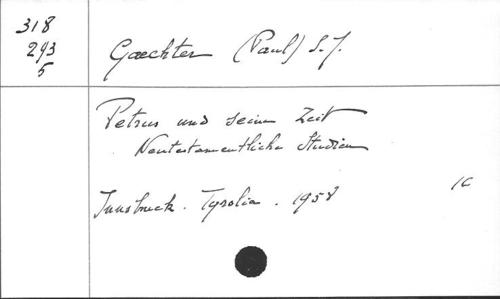 318
293
5
Gaechter (Paul) S.J.
Petrus und seine Zeit
Neutestamentliche Studien
Innsbruck. Tyrolia. 1958
1C